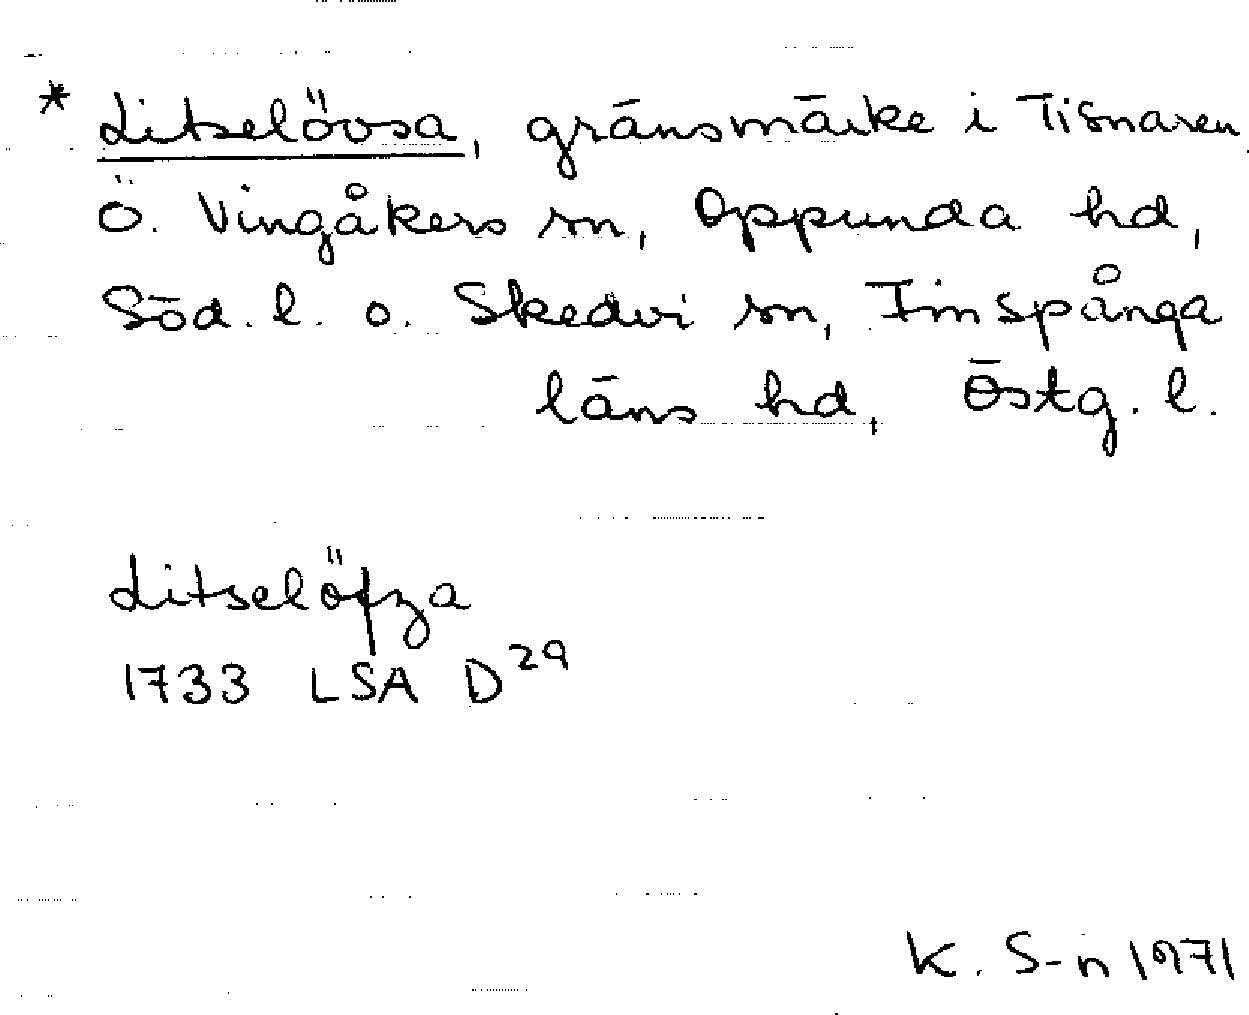 * Litselövsa, gränsmärke i Tisnaren
Ö. Vingåkers sn, Oppunda hd,
Söd. l. o. Skedvi sn, Finspånga
läns hd, Östg. l.
Litselöfza
1733 LSA D²⁹
K. S-n 1971